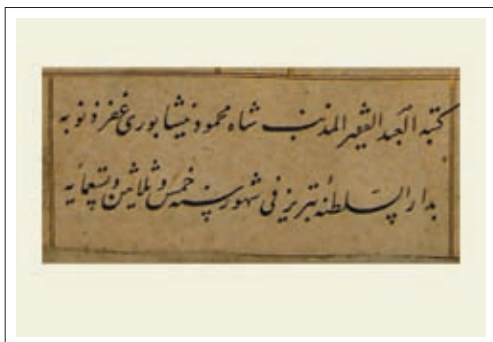 کتبه العبد الفقیر المذنب شاه محمود نیشابوری غفر ذنوبه
بدار السلطنه تبریز فی شهور سنه خمس و ثلاثین و تسعمایه